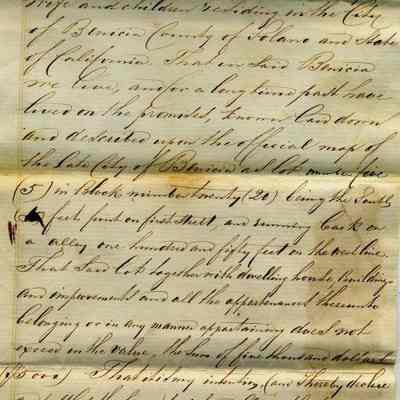 wife and children residing in the City
of Benicia County of Solano and State
of California. That in said Benicia
we live, and for a long time past have
lived on the premises, known laid down
and described upon the official map of
the late City of Benicia as lot number five
(5) in Block number twenty (20) being the South
feet front on first street, and running back on
a alley one hundred and fifty feet on the west line.
That said lot together with dwelling house, buildings
and improvements and all the appurtenances thereunto
belonging or in any manner appertaining does not
exceed in the value, the sum of five thousand dollars
($5000) That it is my intention, and I hereby declare